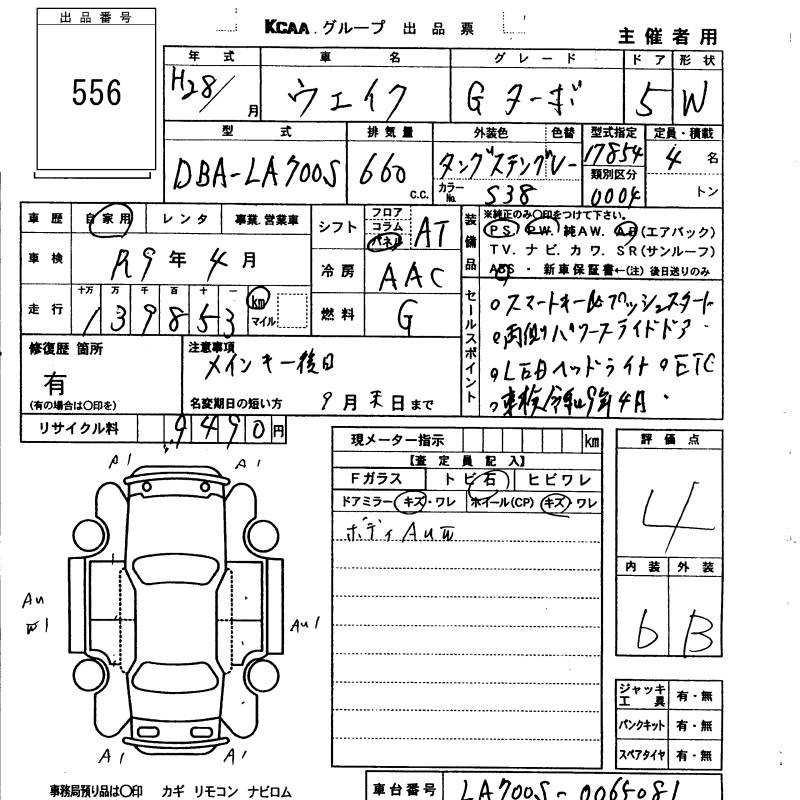 出品番号
556
KCAA グループ 出品票
主催者用
年式 車名 グレード ドア 形状
H28/ 月 ウェイク Gターボ 5 W
型式 排気量 外装色 色替 型式指定 定員・積載
DBA-LA700S 660 c.c. タングステングレー 17854 4 名
カラーNo. S38 類別区分 0004 トン
車歴 自家用 レンタ 事業.営業車
シフト フロア コラム パネル AT
装備品 ※純正のみ〇印をつけて下さい。
PS PW 純AW. AB(エアバック)
TV. ナビ. カワ. SR(サンルーフ)
ABS ・ 新車保証書←(注) 後日送りのみ
車検 R9 年 4 月
冷房 AAC
走行 十万 万 千 百 十 一
139853 km マイル
燃料 G
セールスポイント
スマートキー&プッシュスタート
両側パワースライドドア
LEDヘッドライト ETC
車検令和9年4月
修復歴 箇所
有
(有の場合は〇印を)
注意事項
メインキー後日
名変期日の短い方 9 月 末 日 まで
リサイクル料 9490 円
現メーター指示 km
【査定員記入】
Fガラス トビ石 ヒビワレ
ドアミラー キズ・ワレ ホイール(CP) キズ・ワレ
ボディAUW
評価点
4
内装 外装
b B
A1 A1
AU
W1
AU1
A1 A1
ジャッキ工具 有・無
パンクキット 有・無
スペアタイヤ 有・無
事務局預り品は〇印 カギ リモコン ナビロム
車台番号 LA700S-0065081